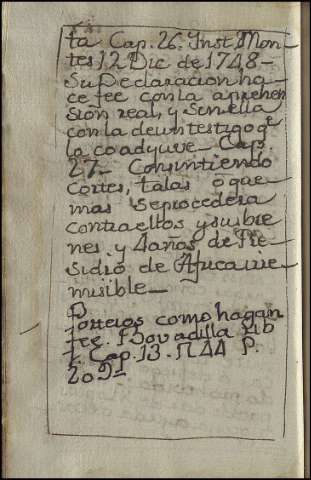 ta Cap. 26. Inst. Mon-
tes 12 Dic de 1748-
Su Declaracion ha-
ce fee con la aprehen
sión real, y Sin ella
con la de un testigo qe
lo coadyuve - Cap.
27- Consintiendo
cortes, talas ò que
mas Seprocedera
contra ellos y sus bie
nes, y 4 años de Pre-
sidio de Africa irre-
misible-
P
Porteros como hagan
fee. Bovadilla lib
Cap. 13. N 44 P.
209-